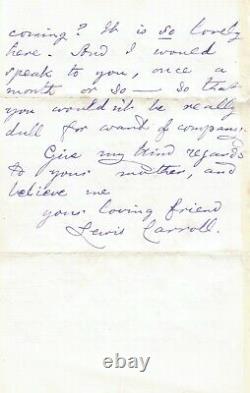 coming? It is so lovely
here. And I would
speak to you, once a
month or so — so that
you wouldn't be really
dull for want of company.
Give my kind regards
to your mother, and
believe me
your loving friend
Lewis Carroll.
hamishstore